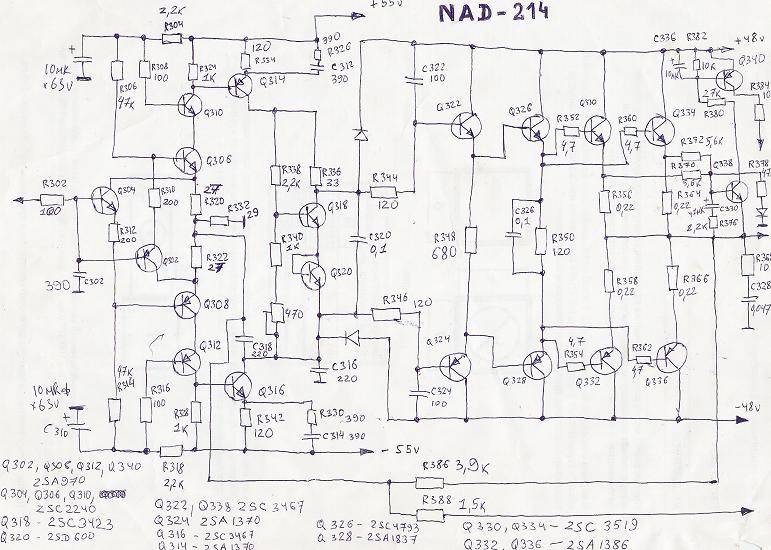 NAD-214
+55v
2,2к
R304
390
R326
C312
390
120
R334
Q314
10мк
x63v
R306
47к
R308
100
R324
1к
Q310
Q306
C322
100
Q322
Q326
Q330
R352
4,7
R360
4,7
Q334
C336
R382
+48v
10к
10мк
Q340
R384
10
27к
R380
R372
5,6к
R370
5,6к
Q338
R378
47
C330
R376
2,2к
R302
100
Q304
R310
200
27
R320
R332
29
R312
200
Q302
R322
27
C302
390
R338
2,2к
R336
33
R344
120
Q318
R340
1к
C320
0,1
Q320
R348
680
C326
0,1
R350
120
R356
0,22
R364
0,22
R358
0,22
R366
0,22
C328
0,047
Q308
470
R346
120
Q312
C318
220
C316
220
Q324
C324
100
Q328
4,7
R354
Q332
R362
4,7
Q336
47к
R314
R316
100
R328
1к
Q316
R342
120
R330
390
C314
390
10мкф
x63v
C310
R318
2,2к
- 55v
-48v
R386 3,9к
R388 1,5к
Q302, Q308, Q312, Q340
2SA970
Q304, Q306, Q310,
2SC2240
Q318 - 2SC3423
Q320 - 2SD600
Q322, Q338 2SC 3467
Q324 2SA1370
Q316 - 2SC3467
Q314 - 2SA1370
Q326 - 2SC4793
Q328 - 2SA1837
Q330, Q334 - 2SC 3519
Q332, Q336 - 2SA 1386